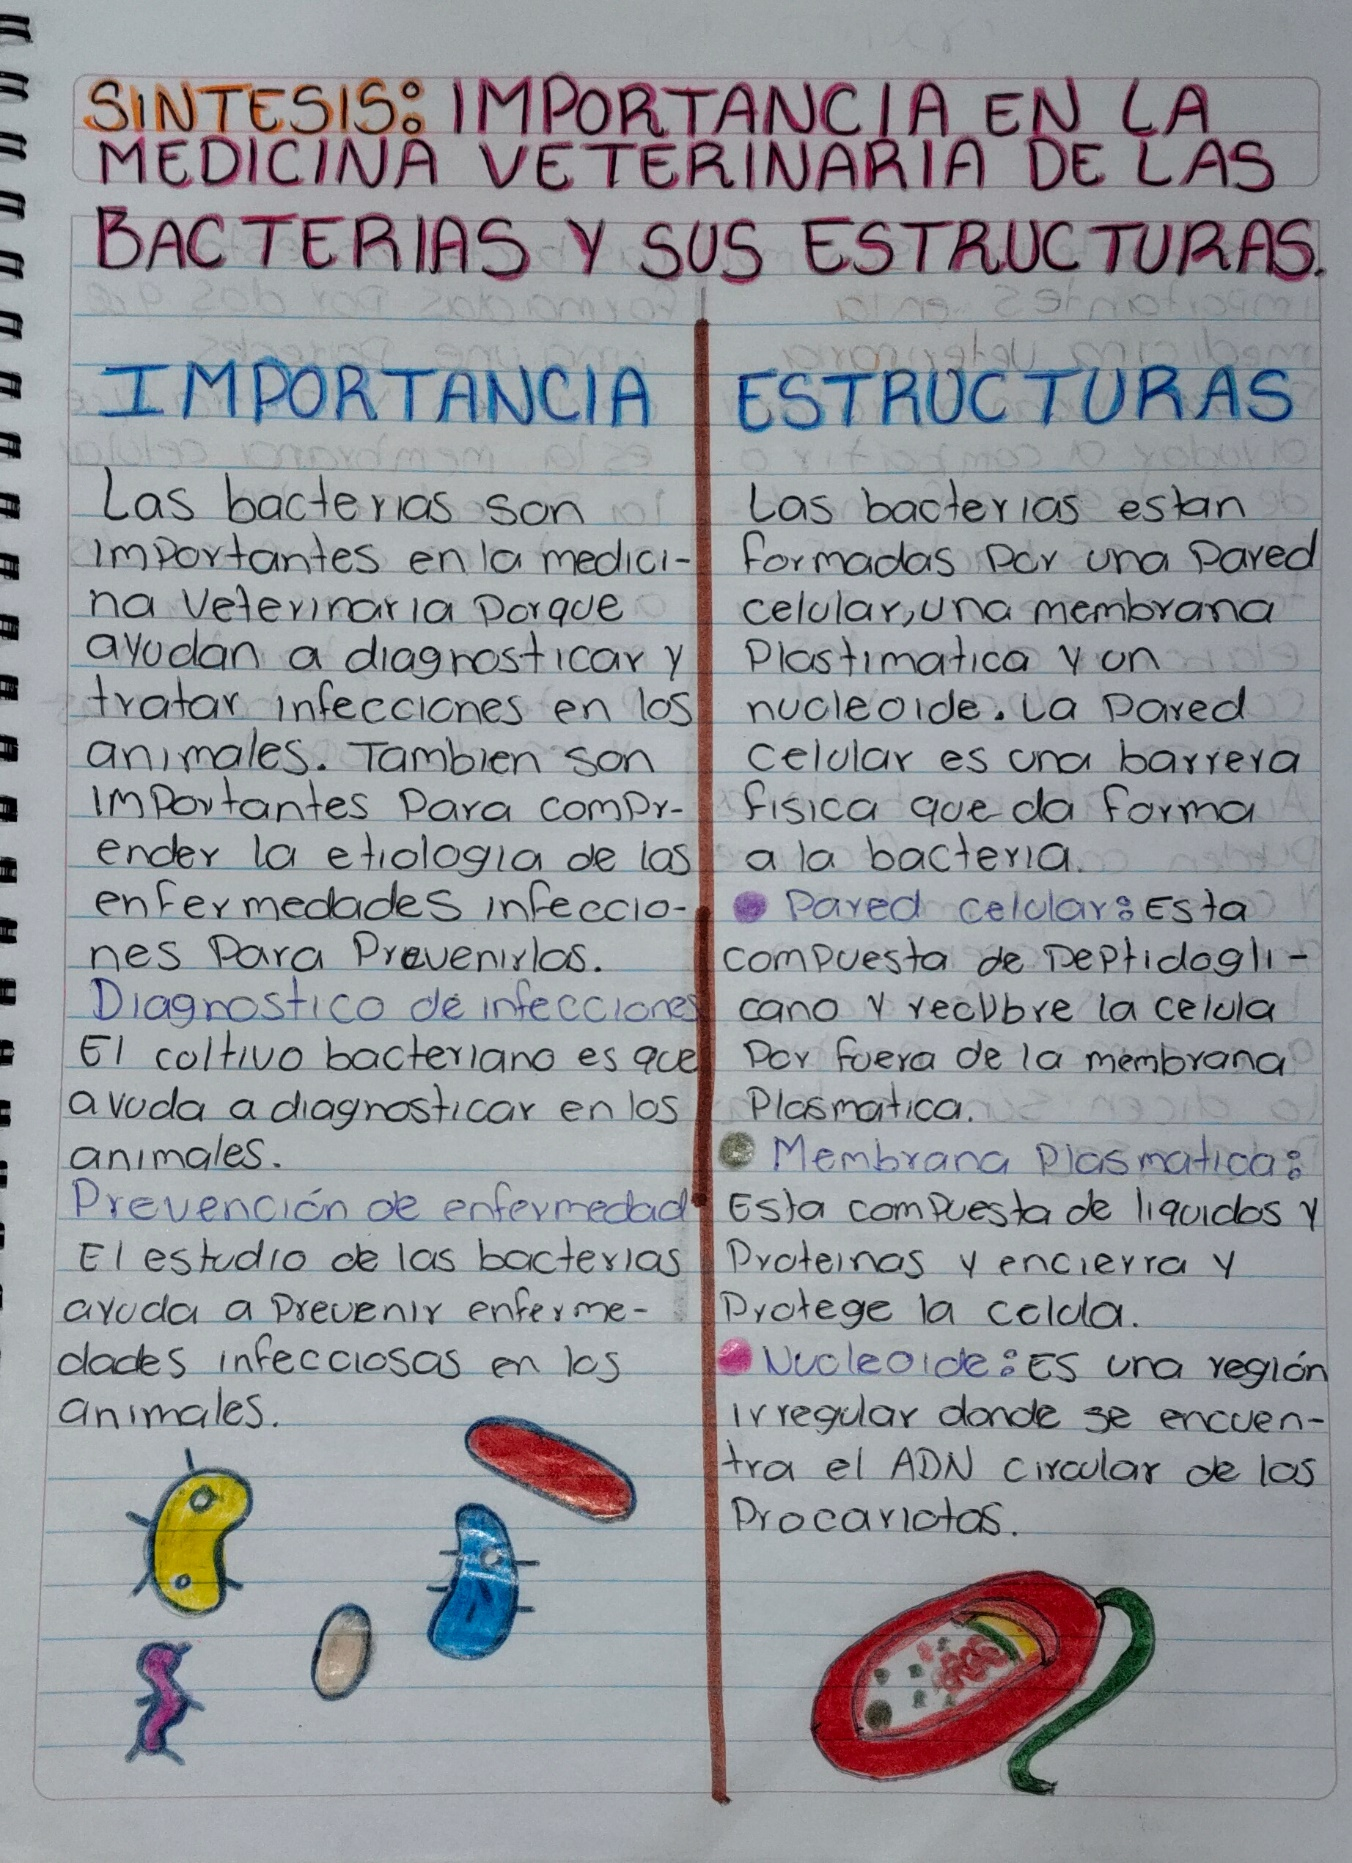 SINTESIS: IMPORTANCIA EN LA
MEDICINA VETERINARIA DE LAS
BACTERIAS Y SUS ESTRUCTURAS.
IMPORTANCIA
Las bacterias son
importantes en la medici-
na veterinaria porque
ayudan a diagnosticar y
tratar infecciones en los
animales. Tambien son
importantes para compr-
ender la etiologia de las
enfermedades infeccio-
nes para prevenirlas.
Diagnostico de infecciones
El coltivo bacteriano es que
avuda a diagnosticar en los
animales.
Prevención de enfermedad
El estudio de las bacterias
ayuda a prevenir enferme-
dades infecciosas en los
animales.
ESTRUCTURAS
Las bacterias estan
formadas por una pared
celular, una membrana
plastimatica y un
nucleoide. La pared
celular es una barrera
fisica que da forma
a la bacteria.
Pared celular: Esta
compuesta de peptidogli-
cano y recubre la celula
por fuera de la membrana
plasmatica.
Membrana plasmatica:
Esta compuesta de liquidos y
proteinas y encierra y
protege la celula.
Nucleoide: Es una región
irregular donde se encuen-
tra el ADN circular de los
procariotas.